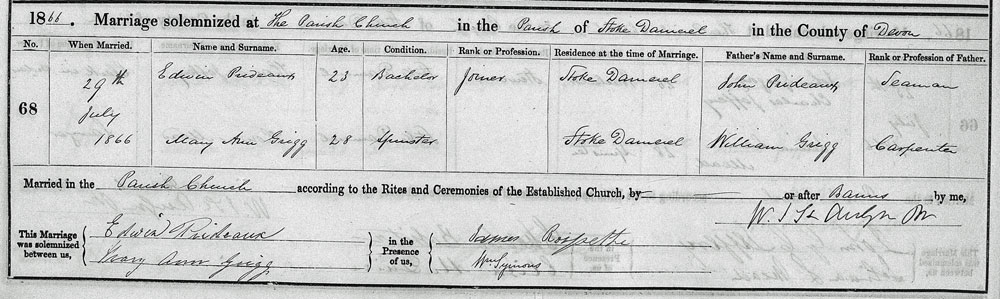 1866. Marriage solemnized at The Parish Church in the Parish of Stoke Damerel in the County of Devon
No. When Married. Name and Surname. Age. Condition. Rank or Profession. Residence at the time of Marriage. Father's Name and Surname. Rank or Profession of Father.
68 29th July 1866 Edwin Prideaux 23 Bachelor Joiner Stoke Damerel John Prideaux Seaman
Mary Ann Grigg 28 Spinster Stoke Damerel William Grigg Carpenter
Married in the Parish Church according to the Rites and Ceremonies of the Established Church, by or after Banns by me,
W. J. St Aubyn
This Marriage was solemnized between us, Edwin Prideaux in the Presence of us, James
Mary Ann Grigg Wm Symons